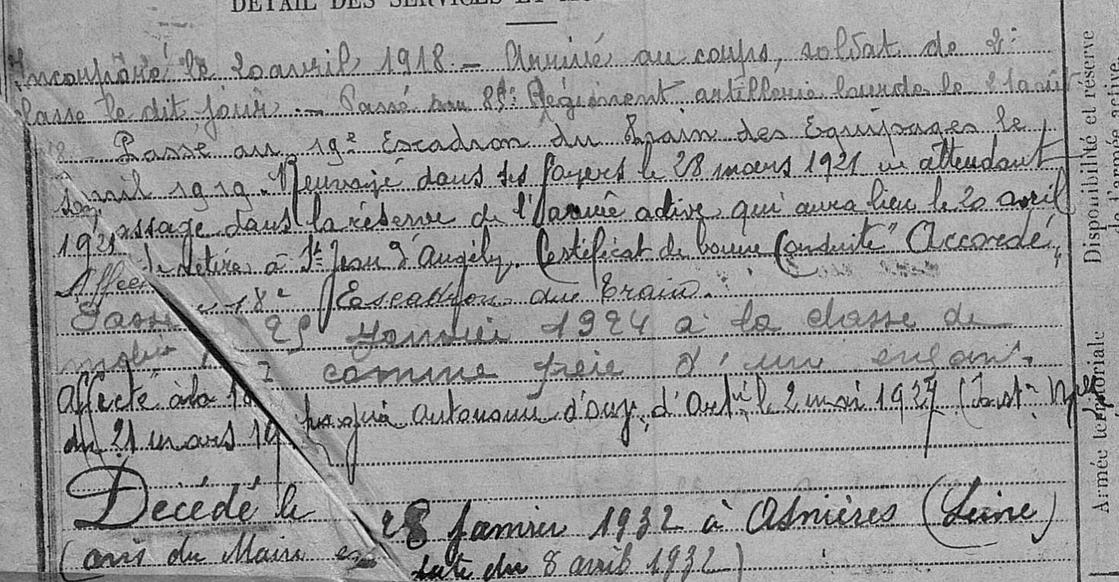 DÉTAIL DES SERVICES ET
Incorporé le 20 avril 1918. – Arrivé au corps, soldat de 2e
classe le dit jour. – Passé au 85e Régiment artillerie lourde le 21 août
Passé au 19e Escadron du Train des Equipages le
avril 1919. Renvoyé dans ses foyers le 28 mars 1921 en attendant
passage dans la réserve de l'armée active qui aura lieu le 20 avril
1921 Se retire à St Jean d'Angély. Certificat de bonne Conduite "Accordé"
18e Escadron du Train.
Passé 25 Janvier 1924 à la classe de
comme père d'un enfant.
Affecté à la 18 autonome d'ouv. d'Artie le 2 mai 1927 (Inst. Nlle
du 21 mars 19
Décédé le 28 Janvier 1932 à Asnières (Seine)
(avis du Maire en date du 8 avril 1932)
Disponibilité et réserve
de l'armée active.
Armée territoriale